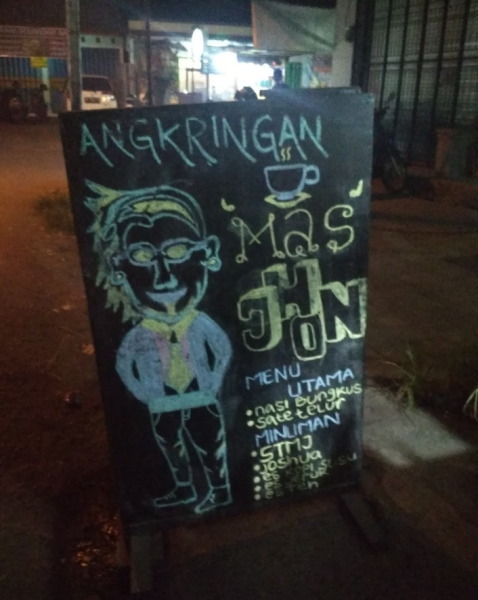 ANGKRINGAN
"MAS"
JHON
MENU
UTAMA
• nasi Bungkus
• sate telur
MINUMAN
• STMJ
• Joshua
susu